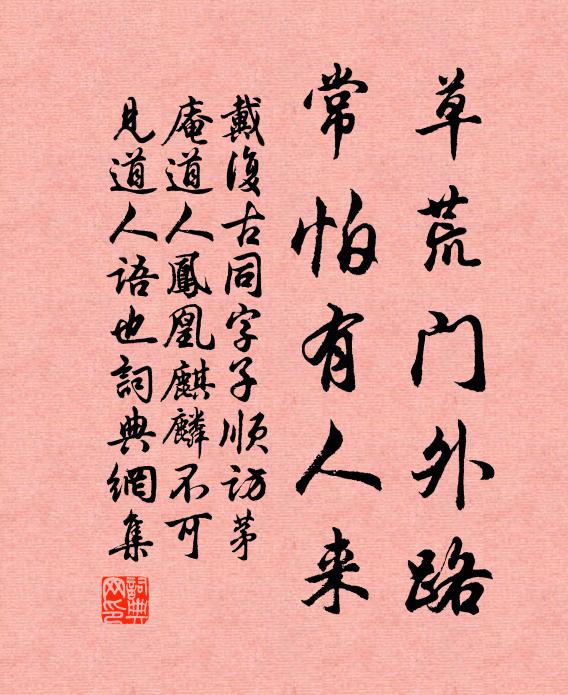 草荒门外路
常怕有人来
戴復古同字子順访茅
庵道人鳳凰麒麟不可
見道人語也詞典網集
詞典网印